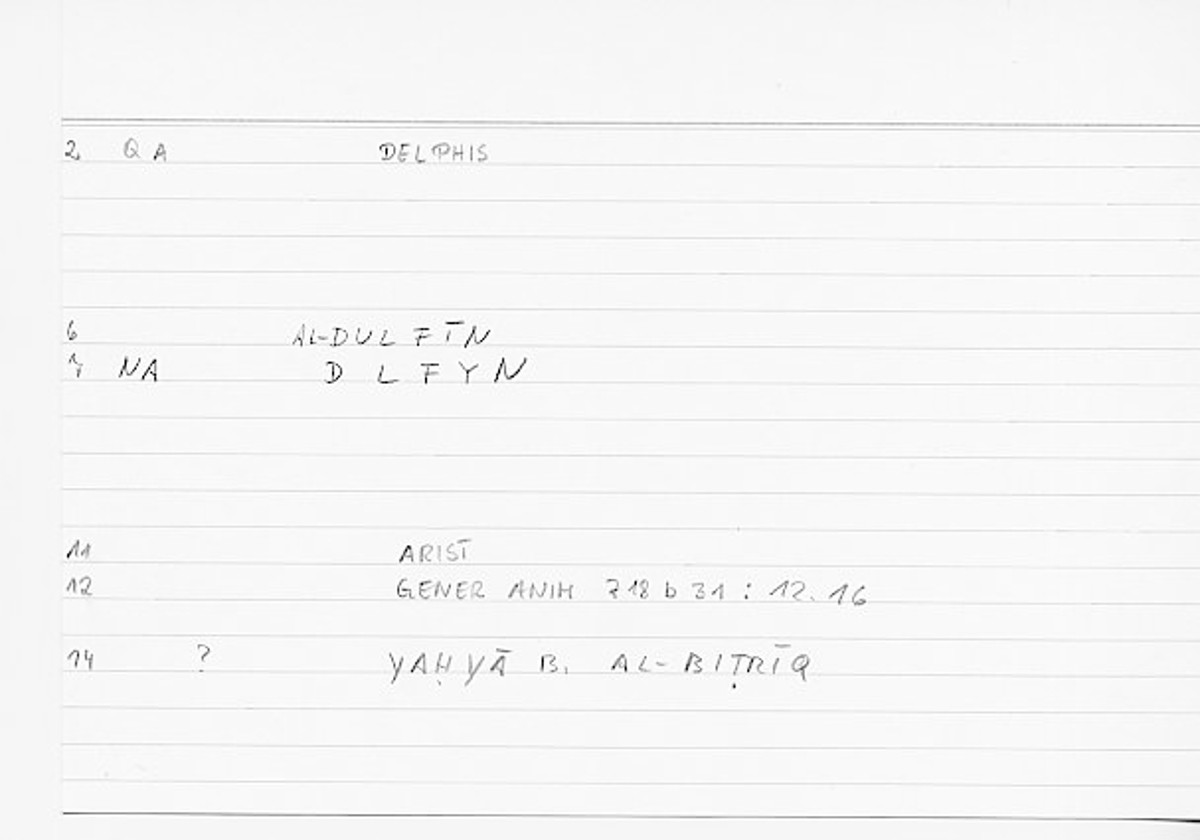 2 QA DELPHIS
6 AL-DULFĪN
7 NA D L F Y N
11 ARIST
12 GENER ANIM 718 b 31 : 12. 16
14 ? YAḤYĀ B. AL-BIṬRĪQ